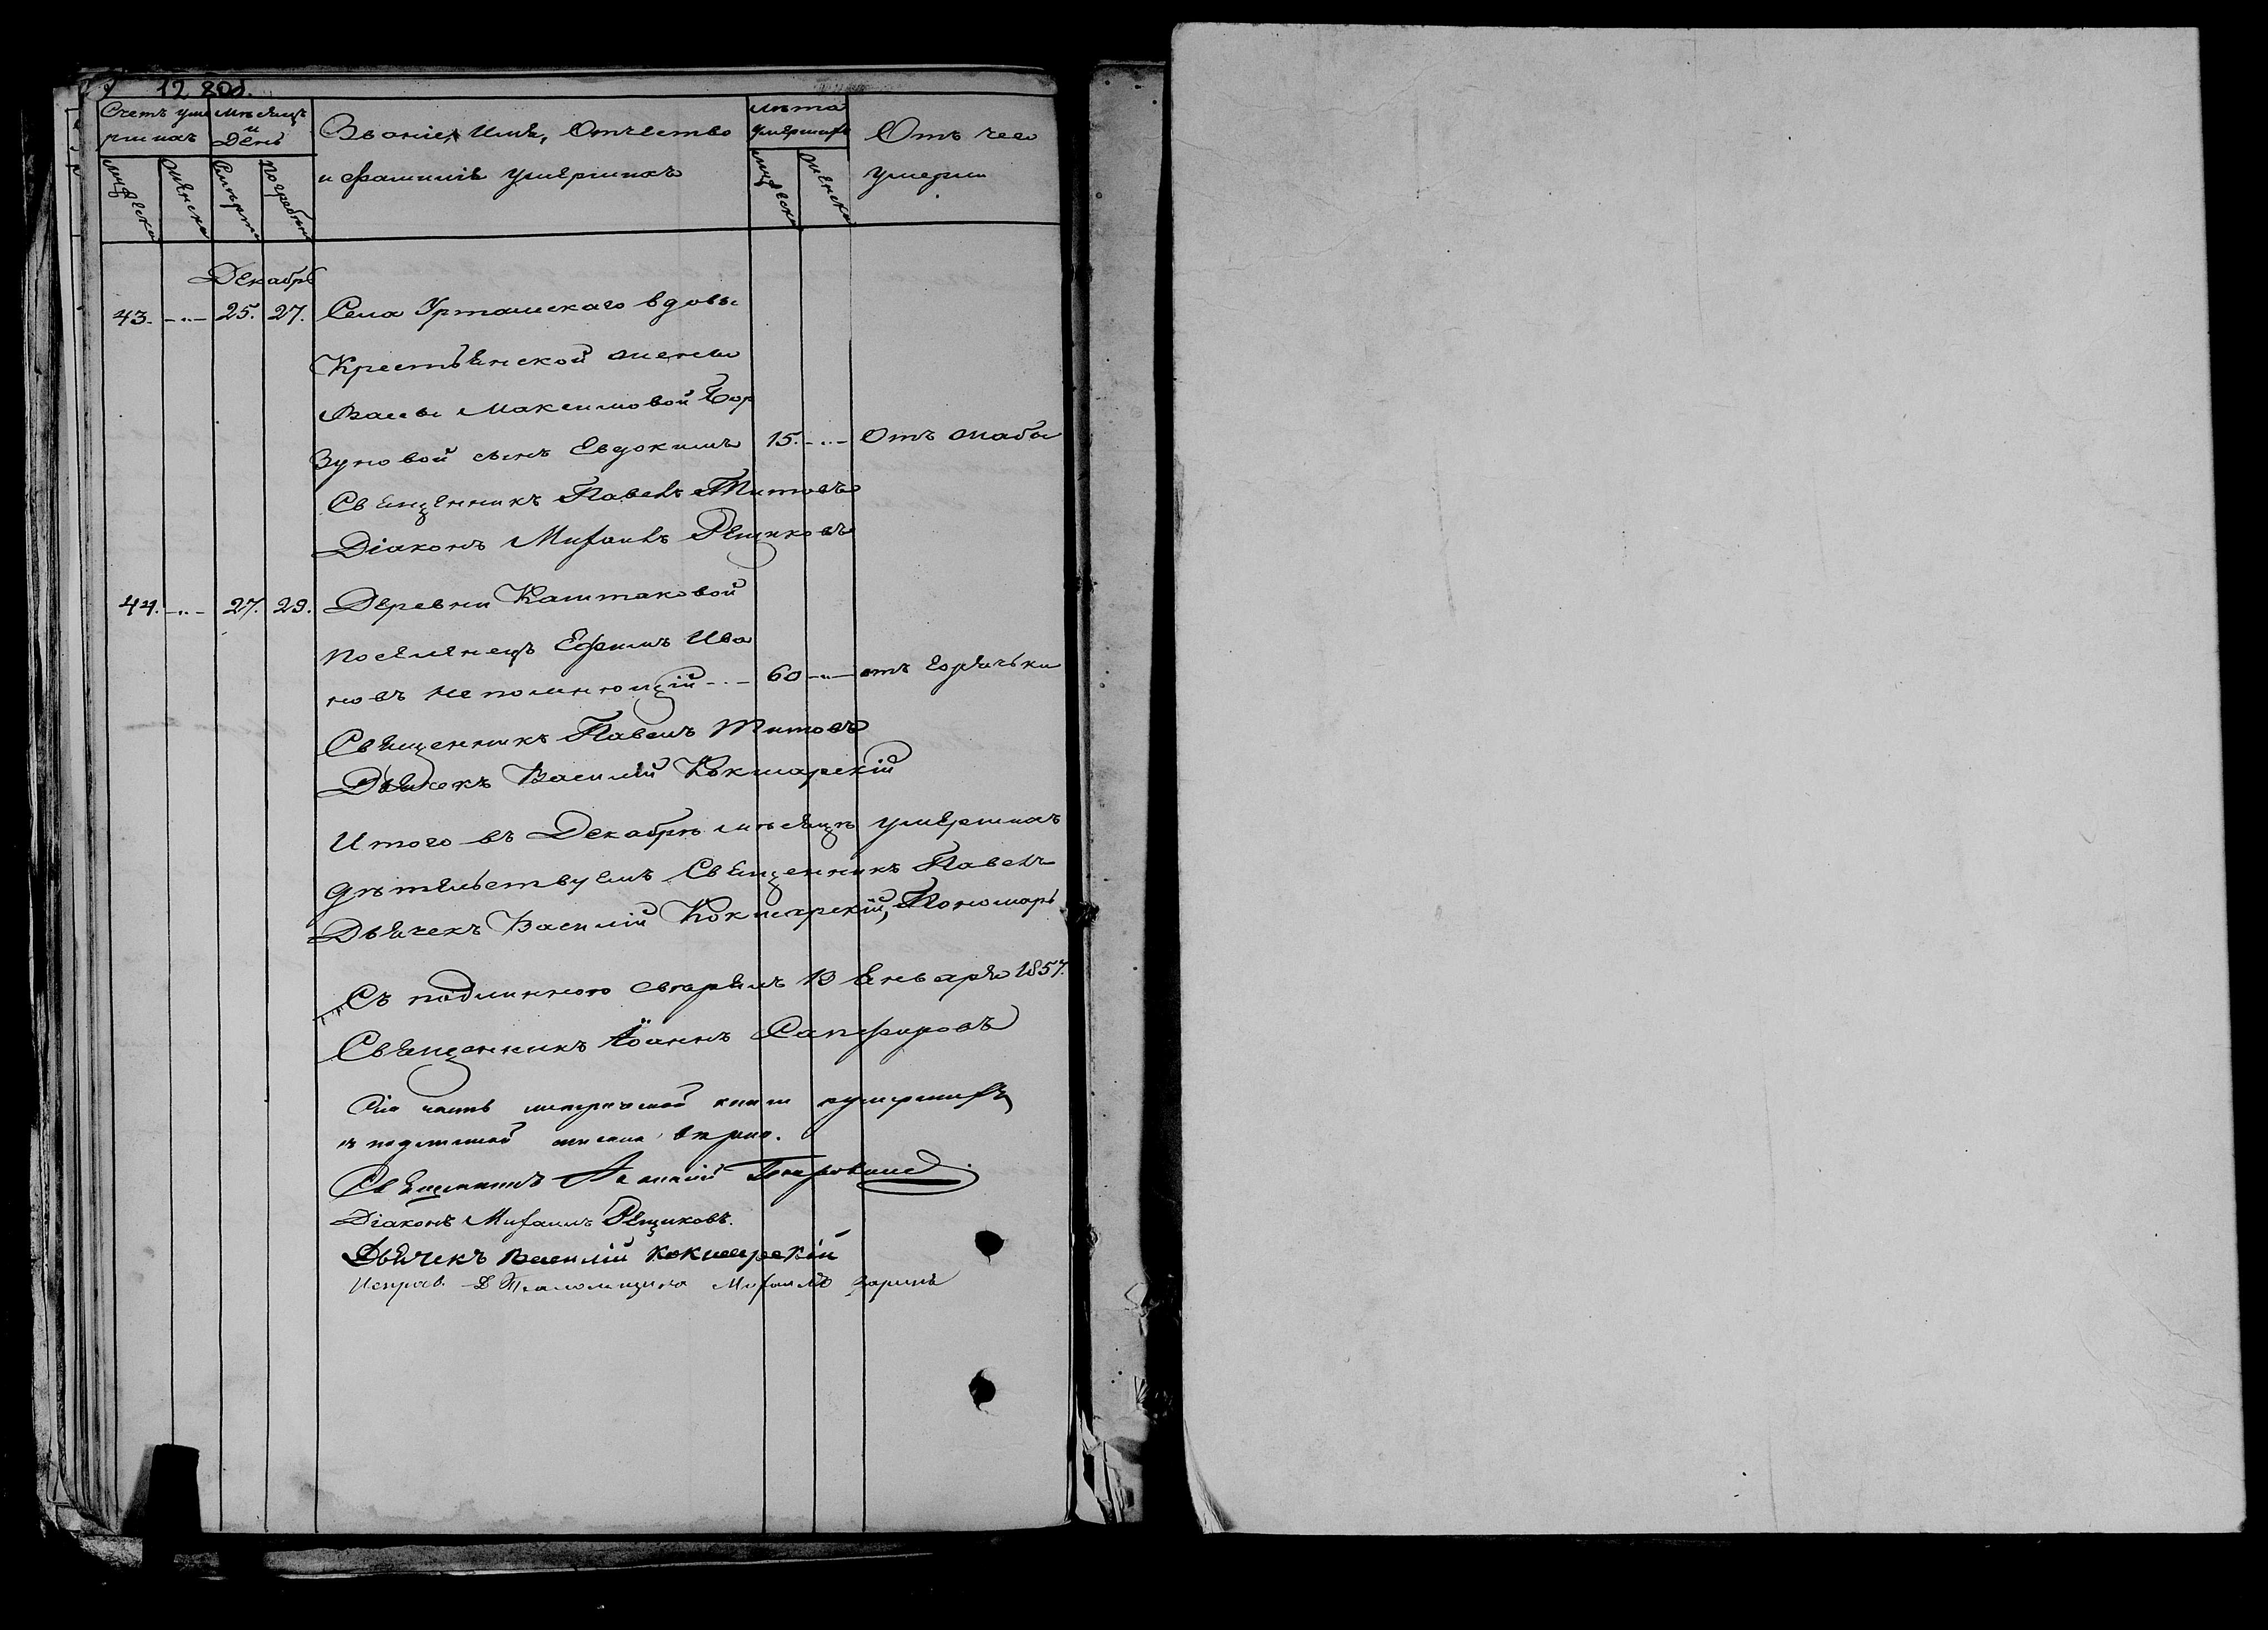 12 
Счетъ уме мѣсяцъ
ршихъ и День
Званіе, Имя, Отчество
и фамилія умершихъ
лѣта
умершихъ
Отъ чего
умерли
мужеска
женска
смерти
погребенія
мужеска
женска
Декабрь
43. 25. 27. Села Урташскаго вдовы
Крестьянской жены
Вассы Максимовой Бор
зуновой сынъ Евдокимъ 15. Отъ жабы
Священникъ Павелъ Титовъ
Діаконъ Михаилъ Рещиковъ
44. 27. 29. Деревни Каштаковой
поселенецъ Ефимъ Ива
новъ непомнющій 60 отъ горячьки
Священникъ Павелъ Титовъ
Дьячекъ Василій Кокшарскій
Итого въ Декабрѣ мѣсяцѣ умершихъ
дѣтельствуемъ Священникъ Павелъ
Дьячекъ Василій Кокшарскій, Пономарь
Съ подлинною сверялъ 13 Января 1857.
Священникъ Іоаннъ Сапфировъ
Сія часть метрической книги оумершихъ
съ подлинной писана вѣрно.
Священникъ
Діаконъ Михаилъ Рещиковъ.
Дьячекъ Василій Кокшарскій
Михаилъ